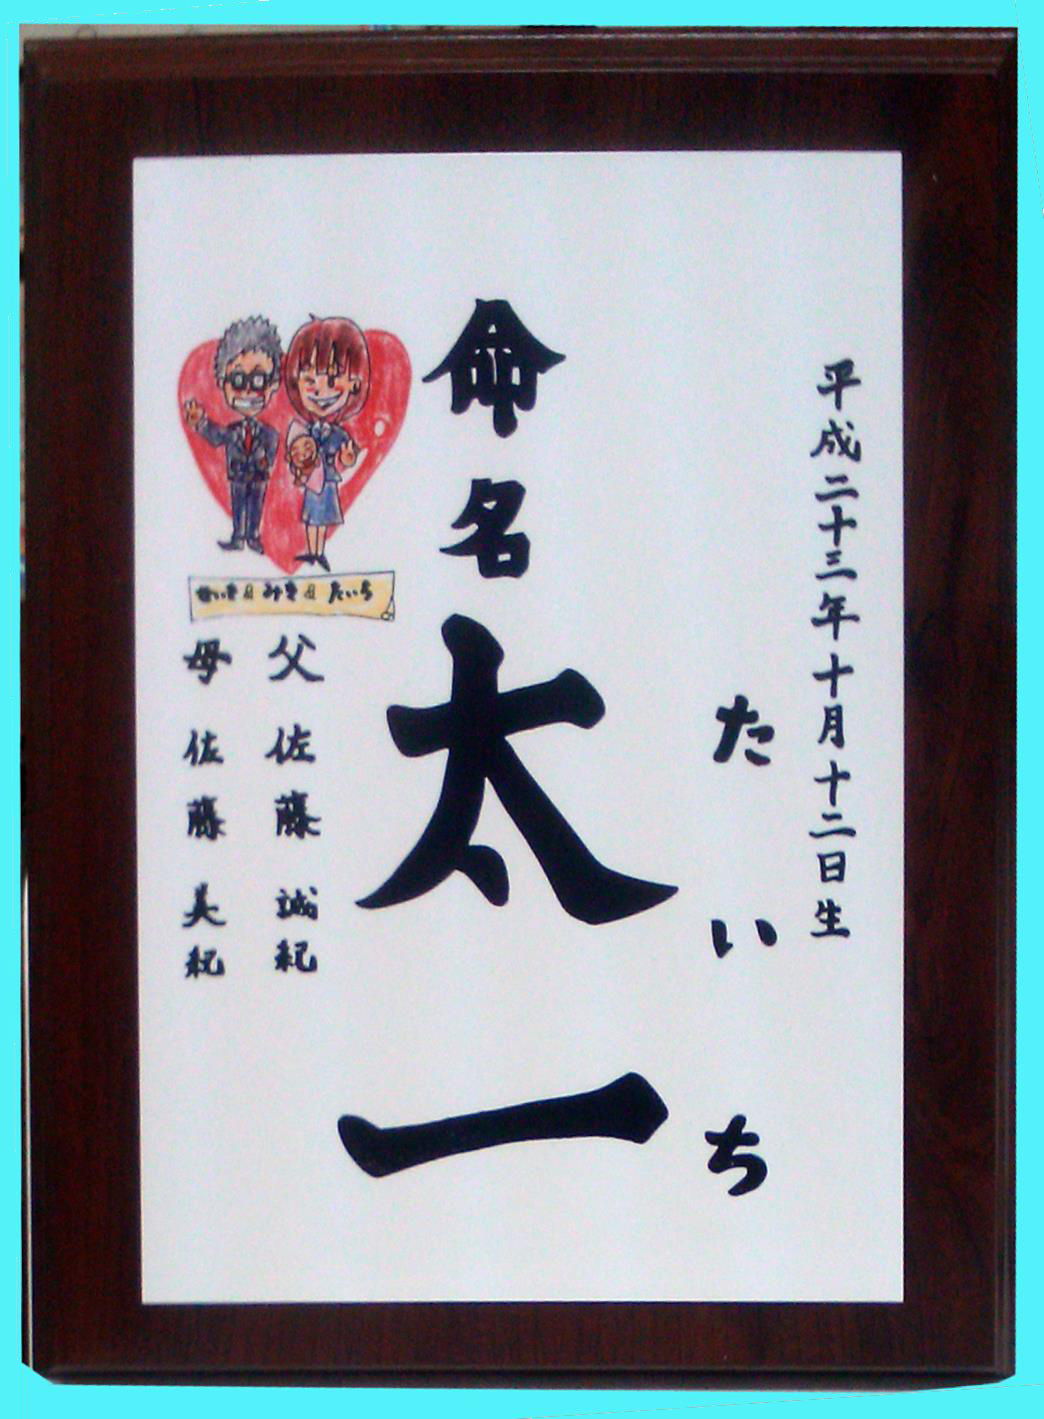 平成二十三年十月十二日生
たいち
命名 太一
せいき & みき & たいち
父 佐藤 誠紀
母 佐藤 美紀